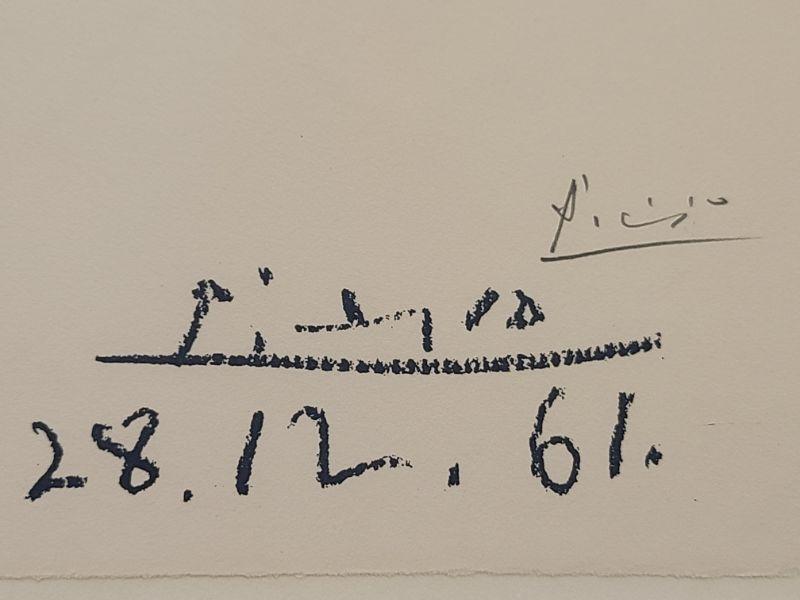 Picasso
Picasso
28.12.61.